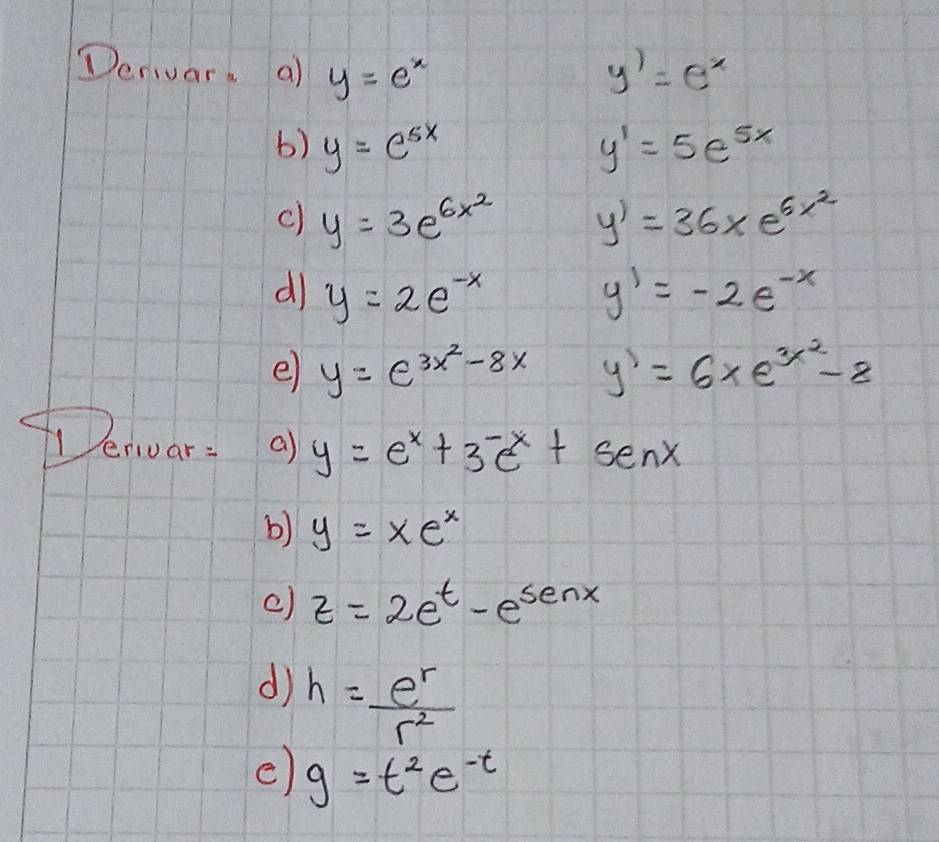 Derivar= a) y = eˣ y' = eˣ
b) y = e⁵ˣ y' = 5e⁵ˣ
c) y = 3e^(6x²) y' = 36xe^(6x²)
d) y = 2e⁻ˣ y' = -2e⁻ˣ
e) y = e^(3x²-8x) y' = 6xe^(3x²)-8
Derivar= a) y = eˣ + 3⁻eˣ + senx
b) y = xeˣ
c) z = 2eᵗ - e^(senx)
d) h = eʳ/r²
e) g = t²e⁻ᵗ